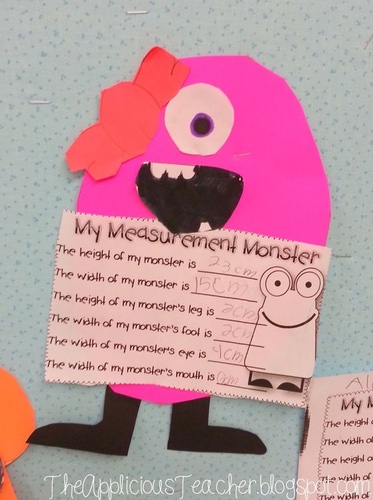 My Measurement Monster
The height of my monster is 23 cm
The width of my monster is 15cm
The height of my monster's leg is 2cm
The width of my monster's foot is 2cm
The width of my monster's eye is 4cm
The width of my monster's mouth is
Al
My M
The height o
The width of
The height
The width
The width
The width
TheAppliciousTeacher.blogspot.com